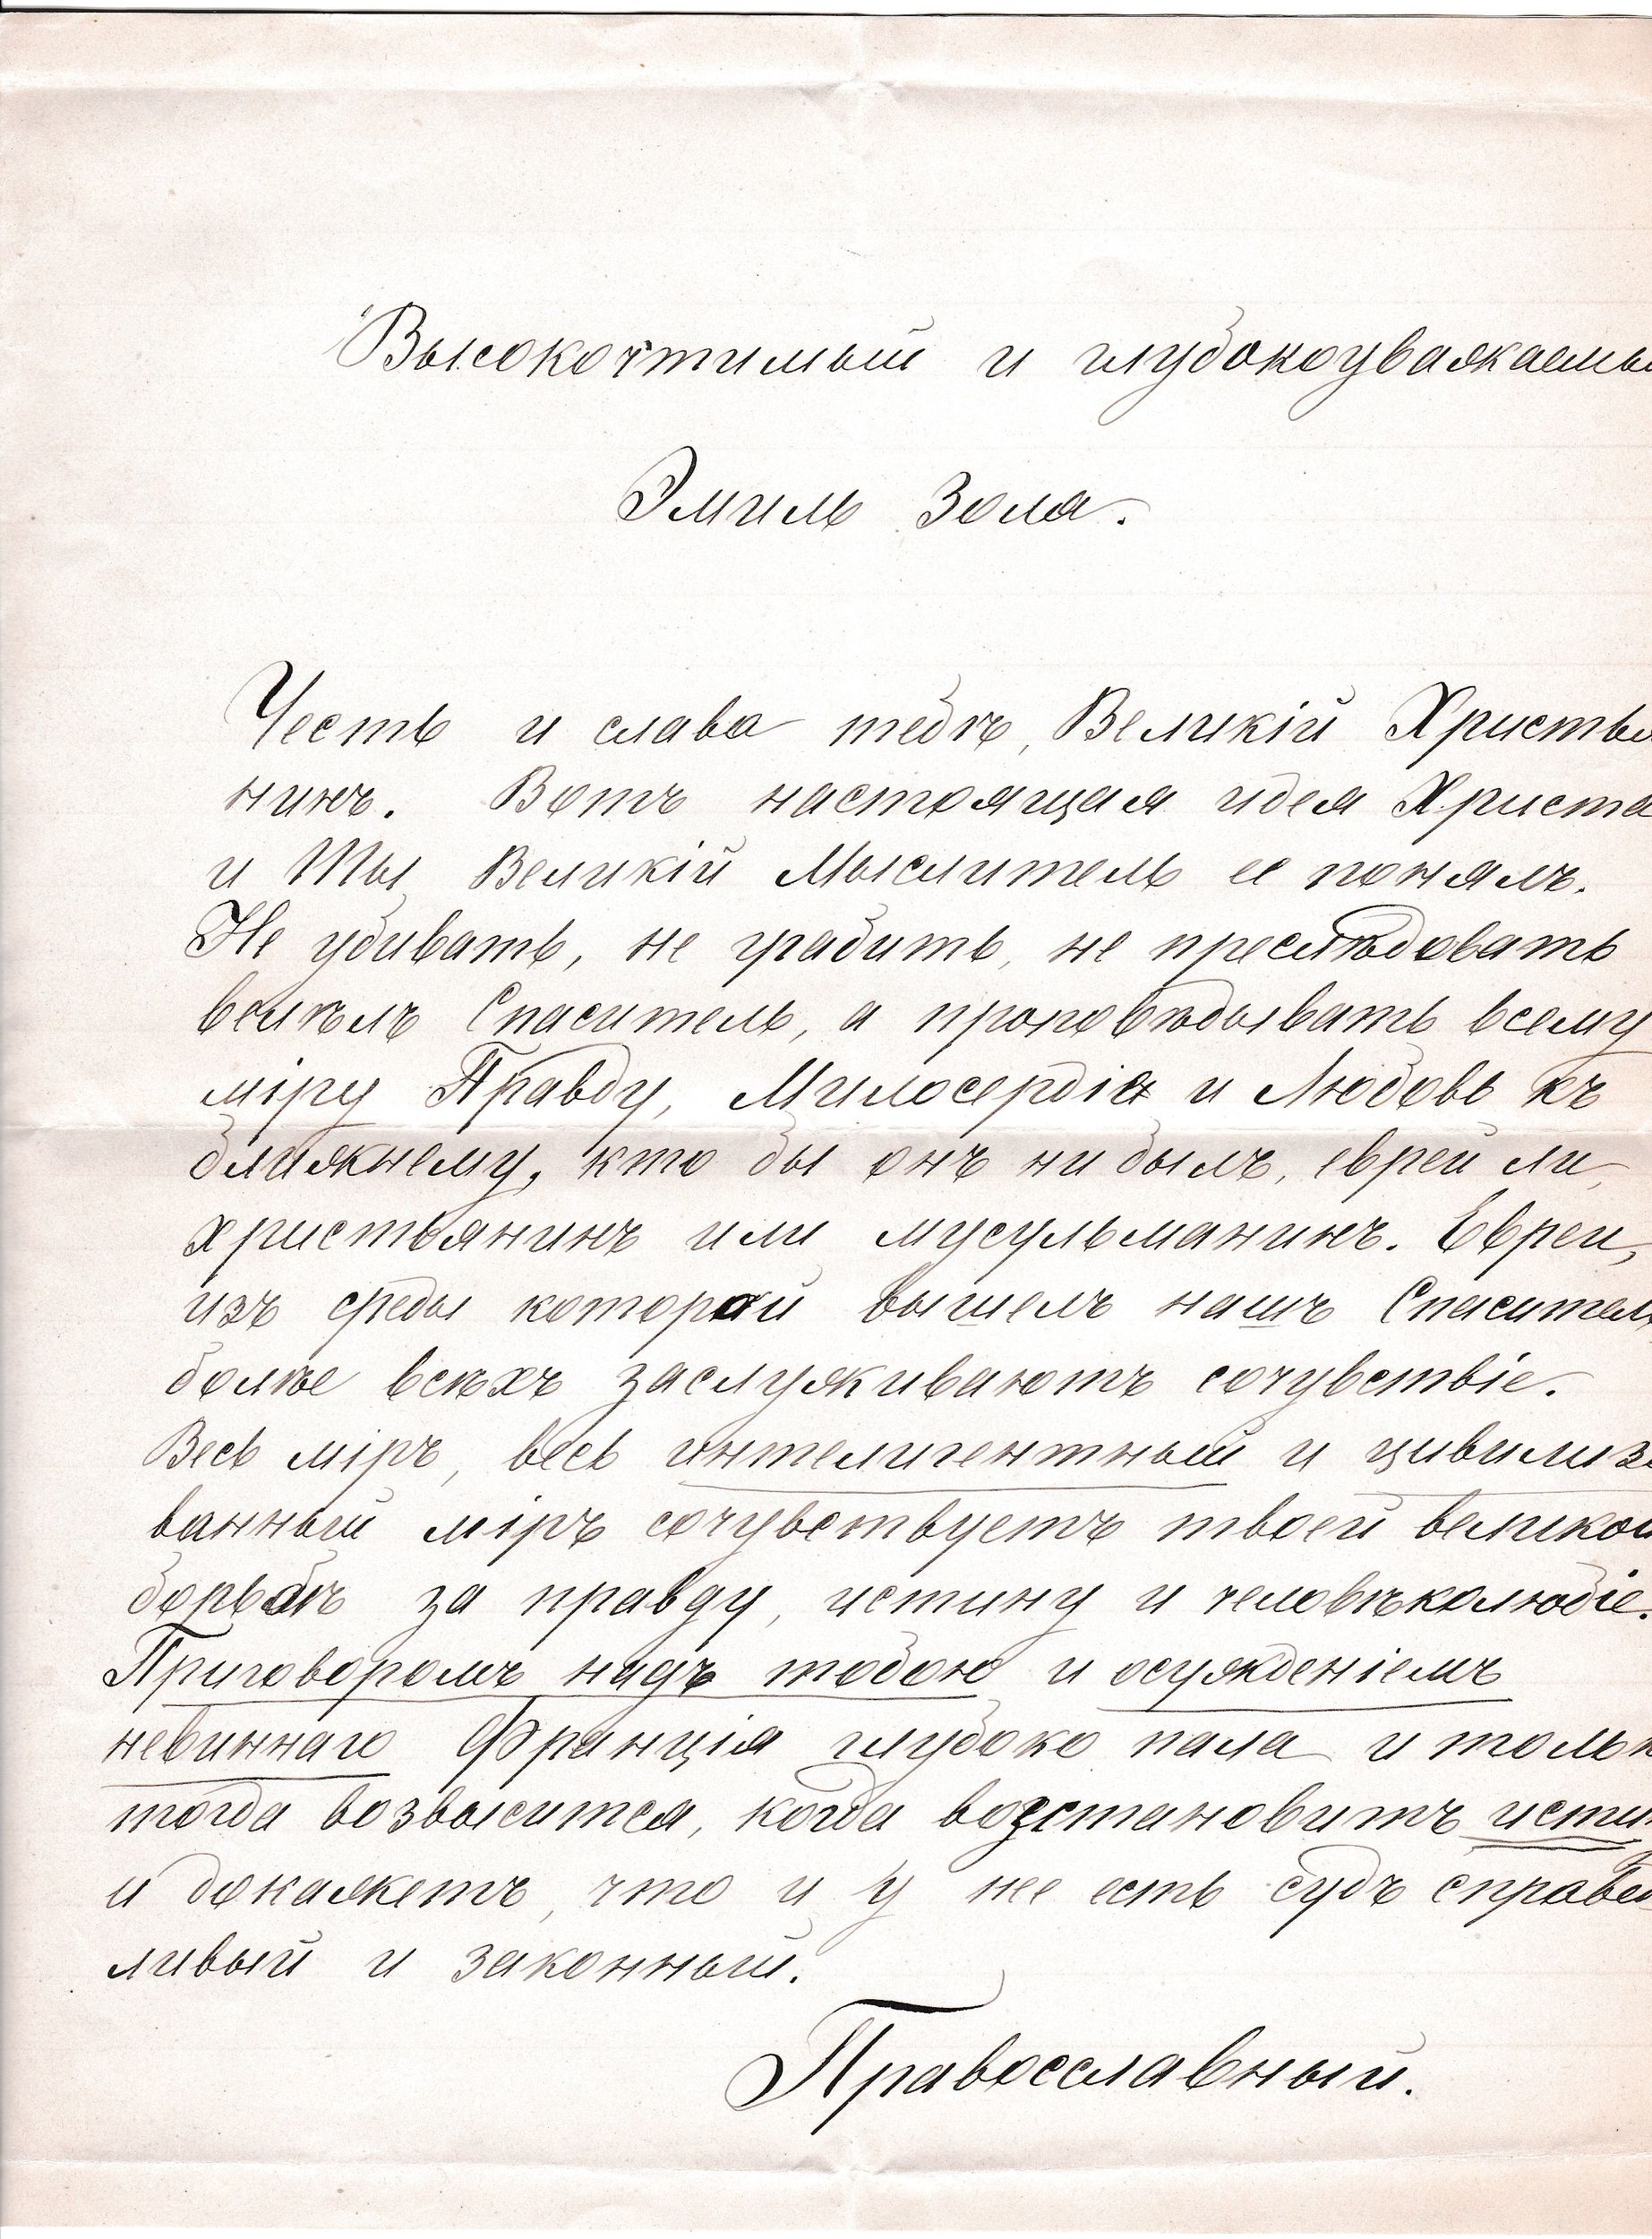 Высокочтимый и глубокоуважаемы
Эмиль Зола.
Честь и слава тебѣ, Великій Христья
нинъ. Вотъ настоящая идея Христа
и Ты, Великій Мыслитель ее понялъ.
Не убивать, не грабить, не преслѣдовать
велѣлъ Спаситель, а проповѣдывать всему
міру Правду, Милосердіе и Любовь къ
ближнему, кто бы онъ ни былъ, еврей ли,
христьянинъ или мусульманинъ. Евреи,
изъ среды которой вышелъ нашъ Спаситель
болѣе всѣхъ заслуживаютъ сочувствіе.
Весь міръ, весь интелигентный и цивилизо
ванный міръ сочувствуетъ твоей великой
борьбѣ за правду, истину и человѣколюбіе.
Приговоромъ надъ тобою и осужденіемъ
невиннаго Франція глубоко пала и тольк
тогда возвысится, когда возстановитъ истин
и докажетъ, что и у нее есть судъ справед
ливый и законный.
Правосславный.